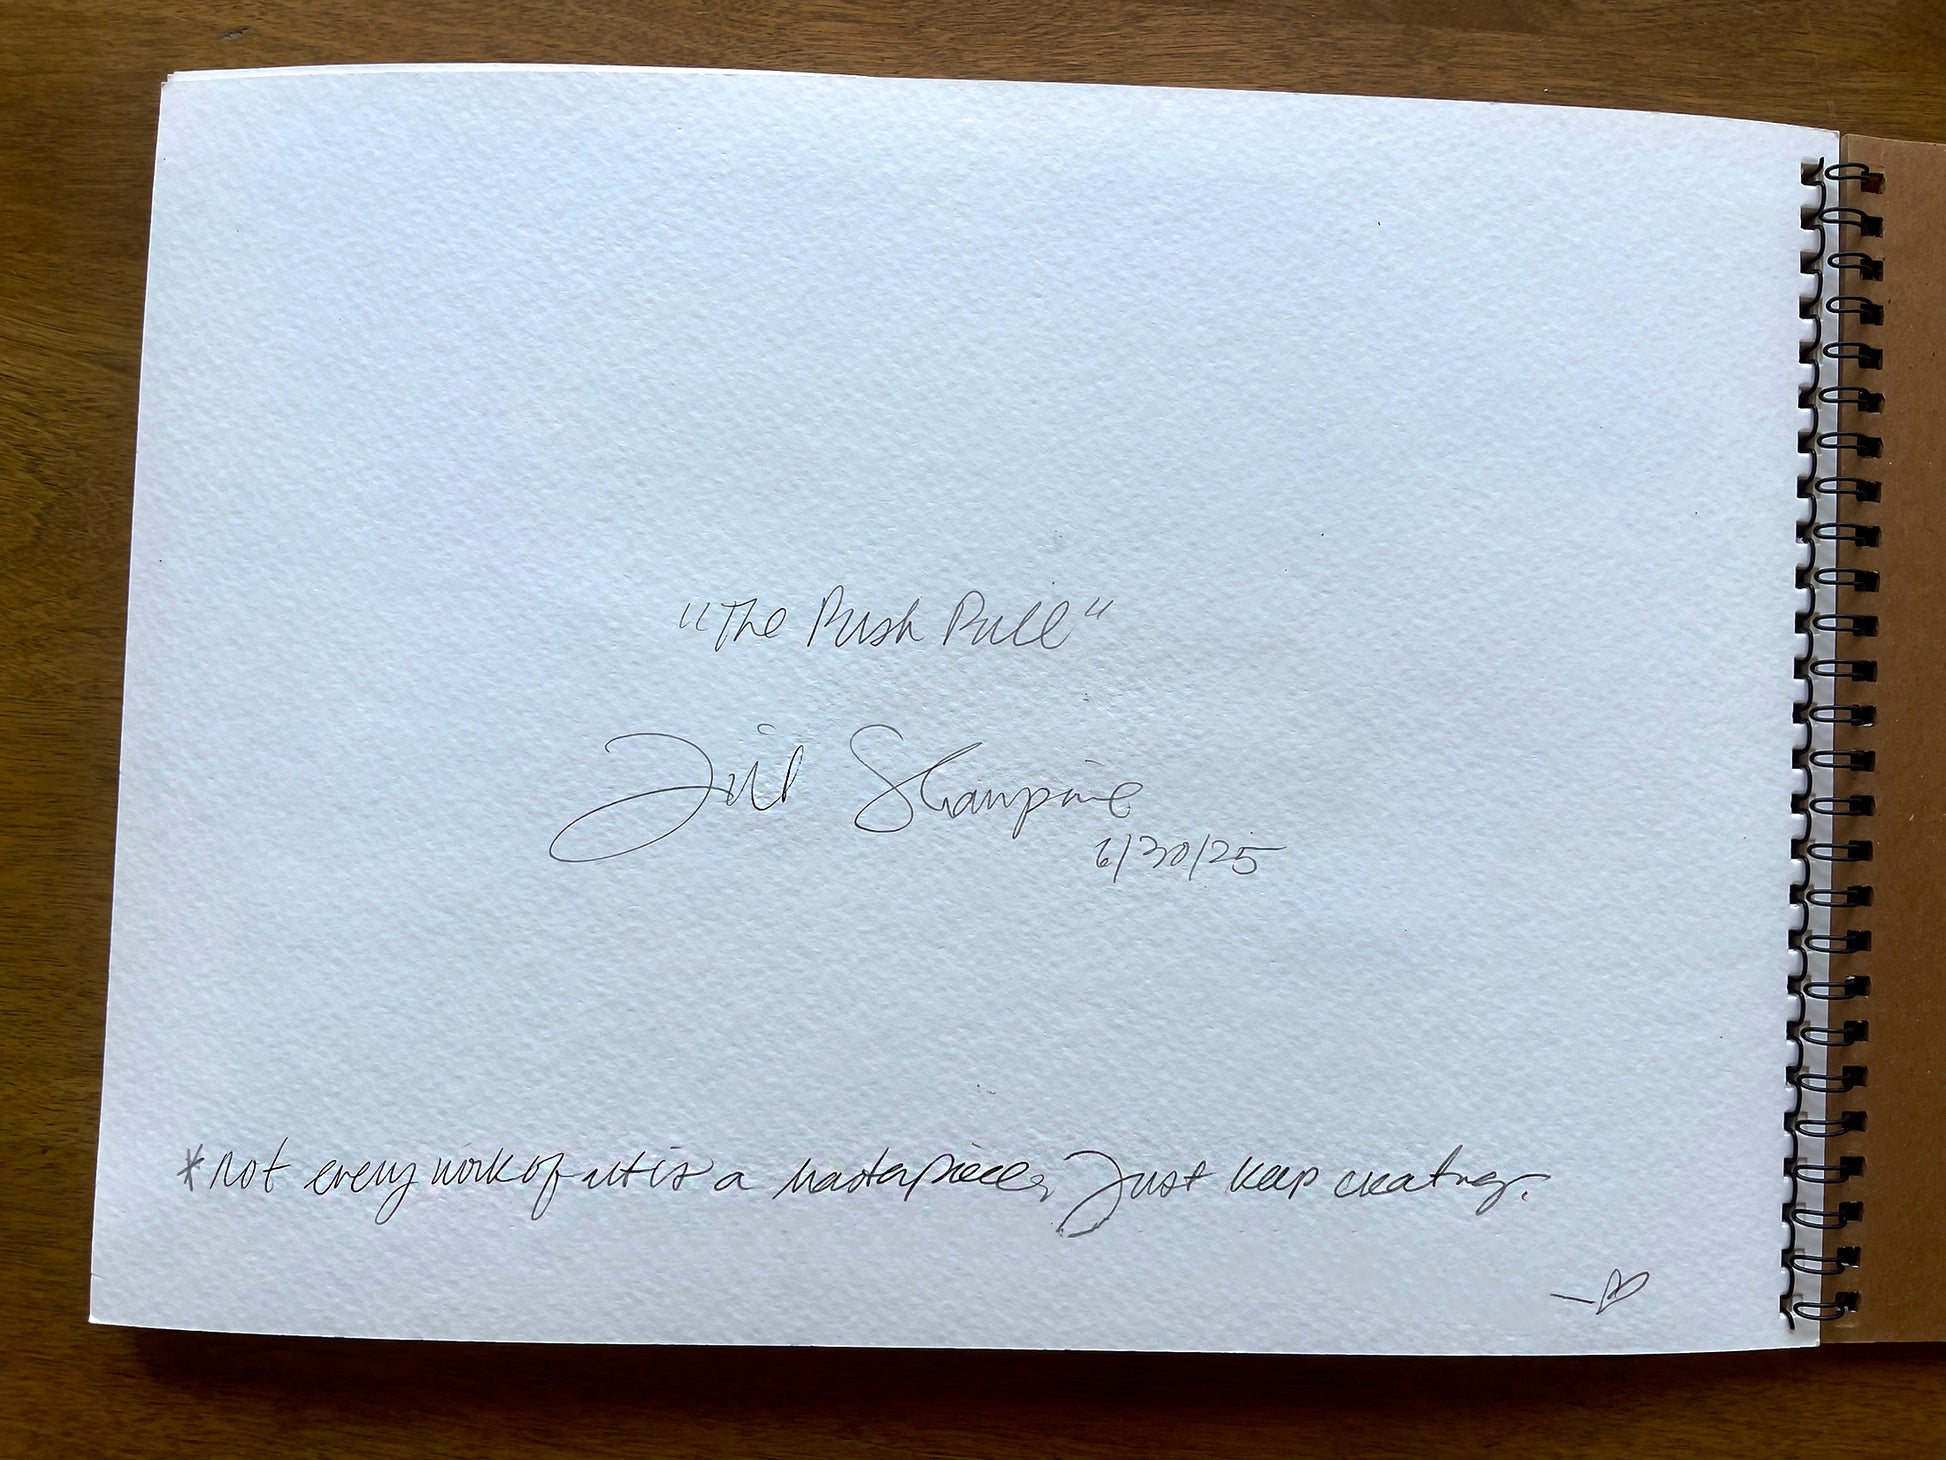 "The Push Pull"
Jill Shampine
6/30/25
*not every work of art is a masterpiece, Just keep creating.